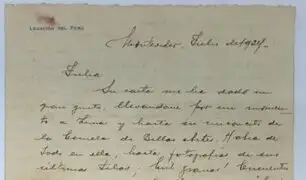 LEGACIÓN DEL PERÚ
Montevideo, Julio de 1928.
Julia
Su carta me ha dado un
gran gusto, llevandome por un momento
to a Lima y hasta su rinconcito de
la Escuela de Bellas Artes. Habia de
todo en ella, hasta fotografias de sus
ultimas telas, que ganas! Encuentro